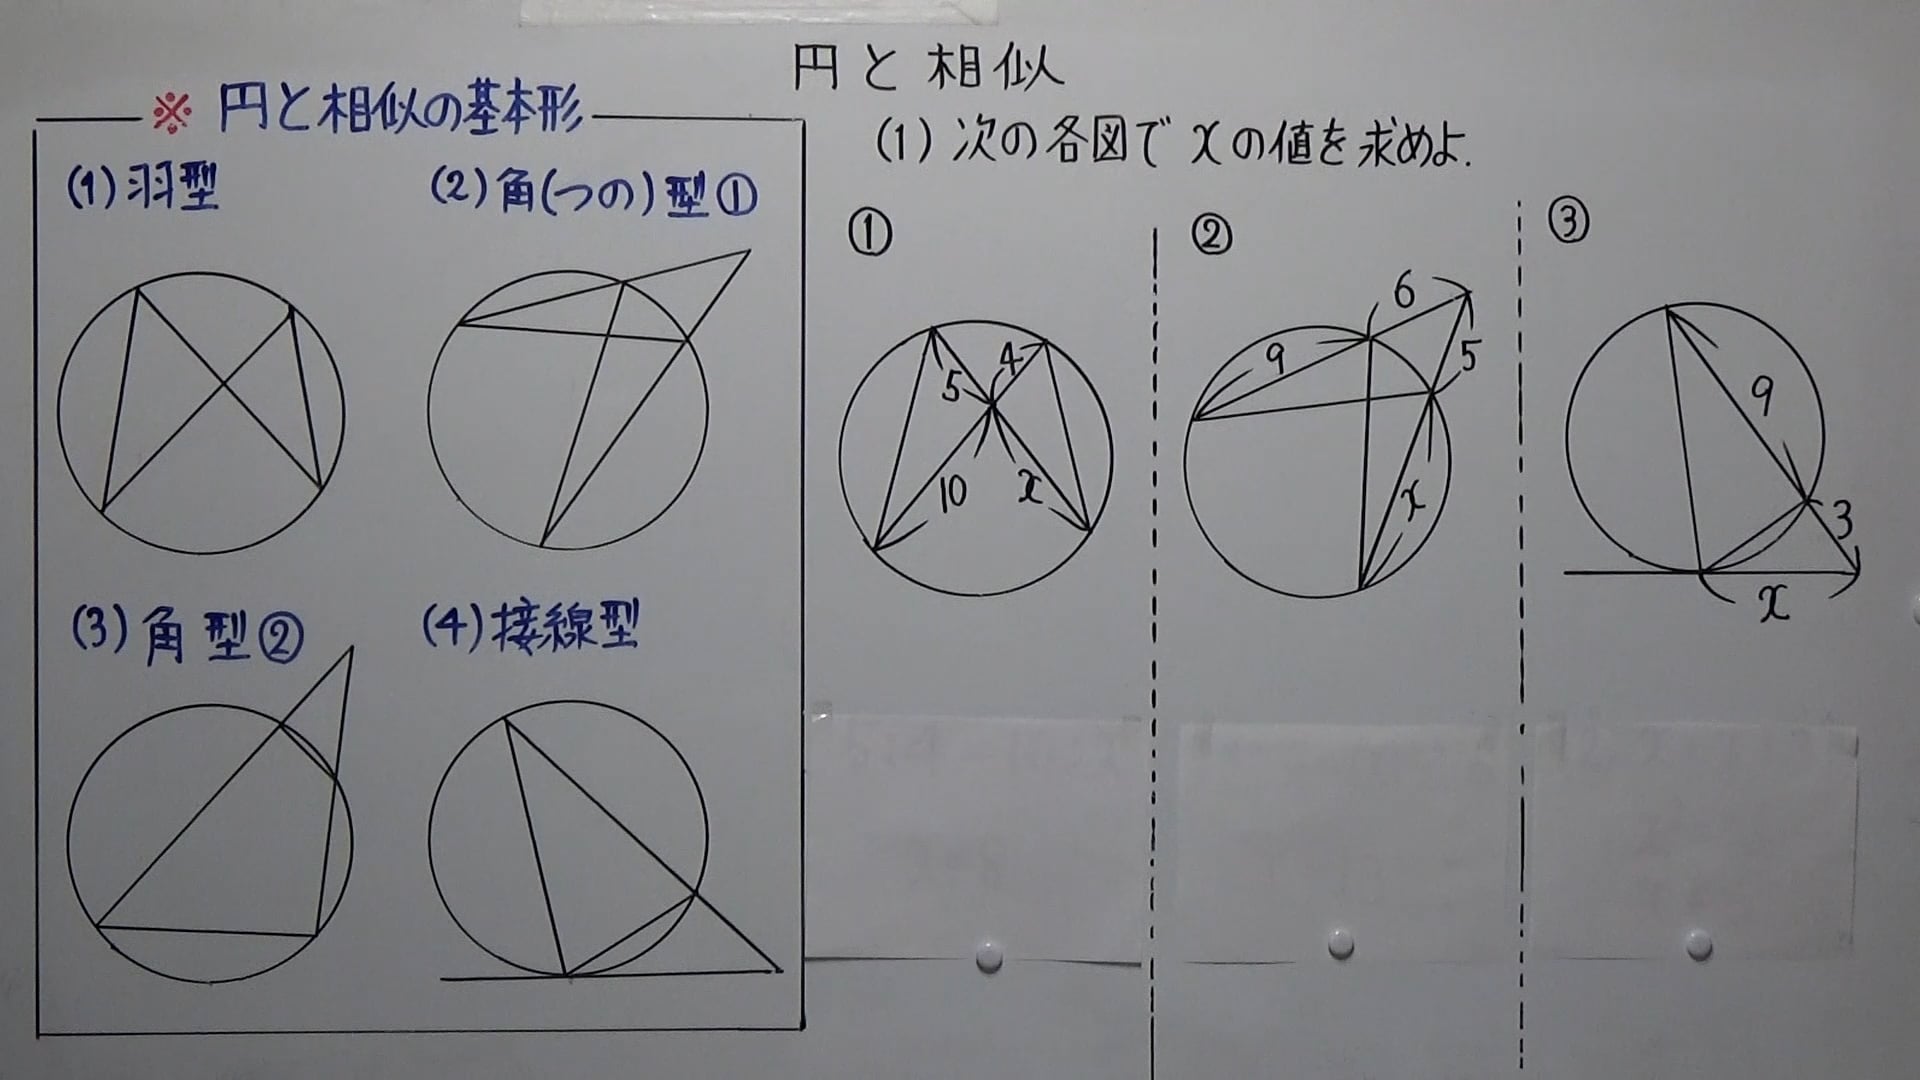 円と相似
※ 円と相似の基本形
(1) 羽型
(2) 角(つの)型①
(3) 角型②
(4) 接線型
(1) 次の各図でxの値を求めよ.
①
5
4
10
x
②
6
9
5
x
③
9
3
x